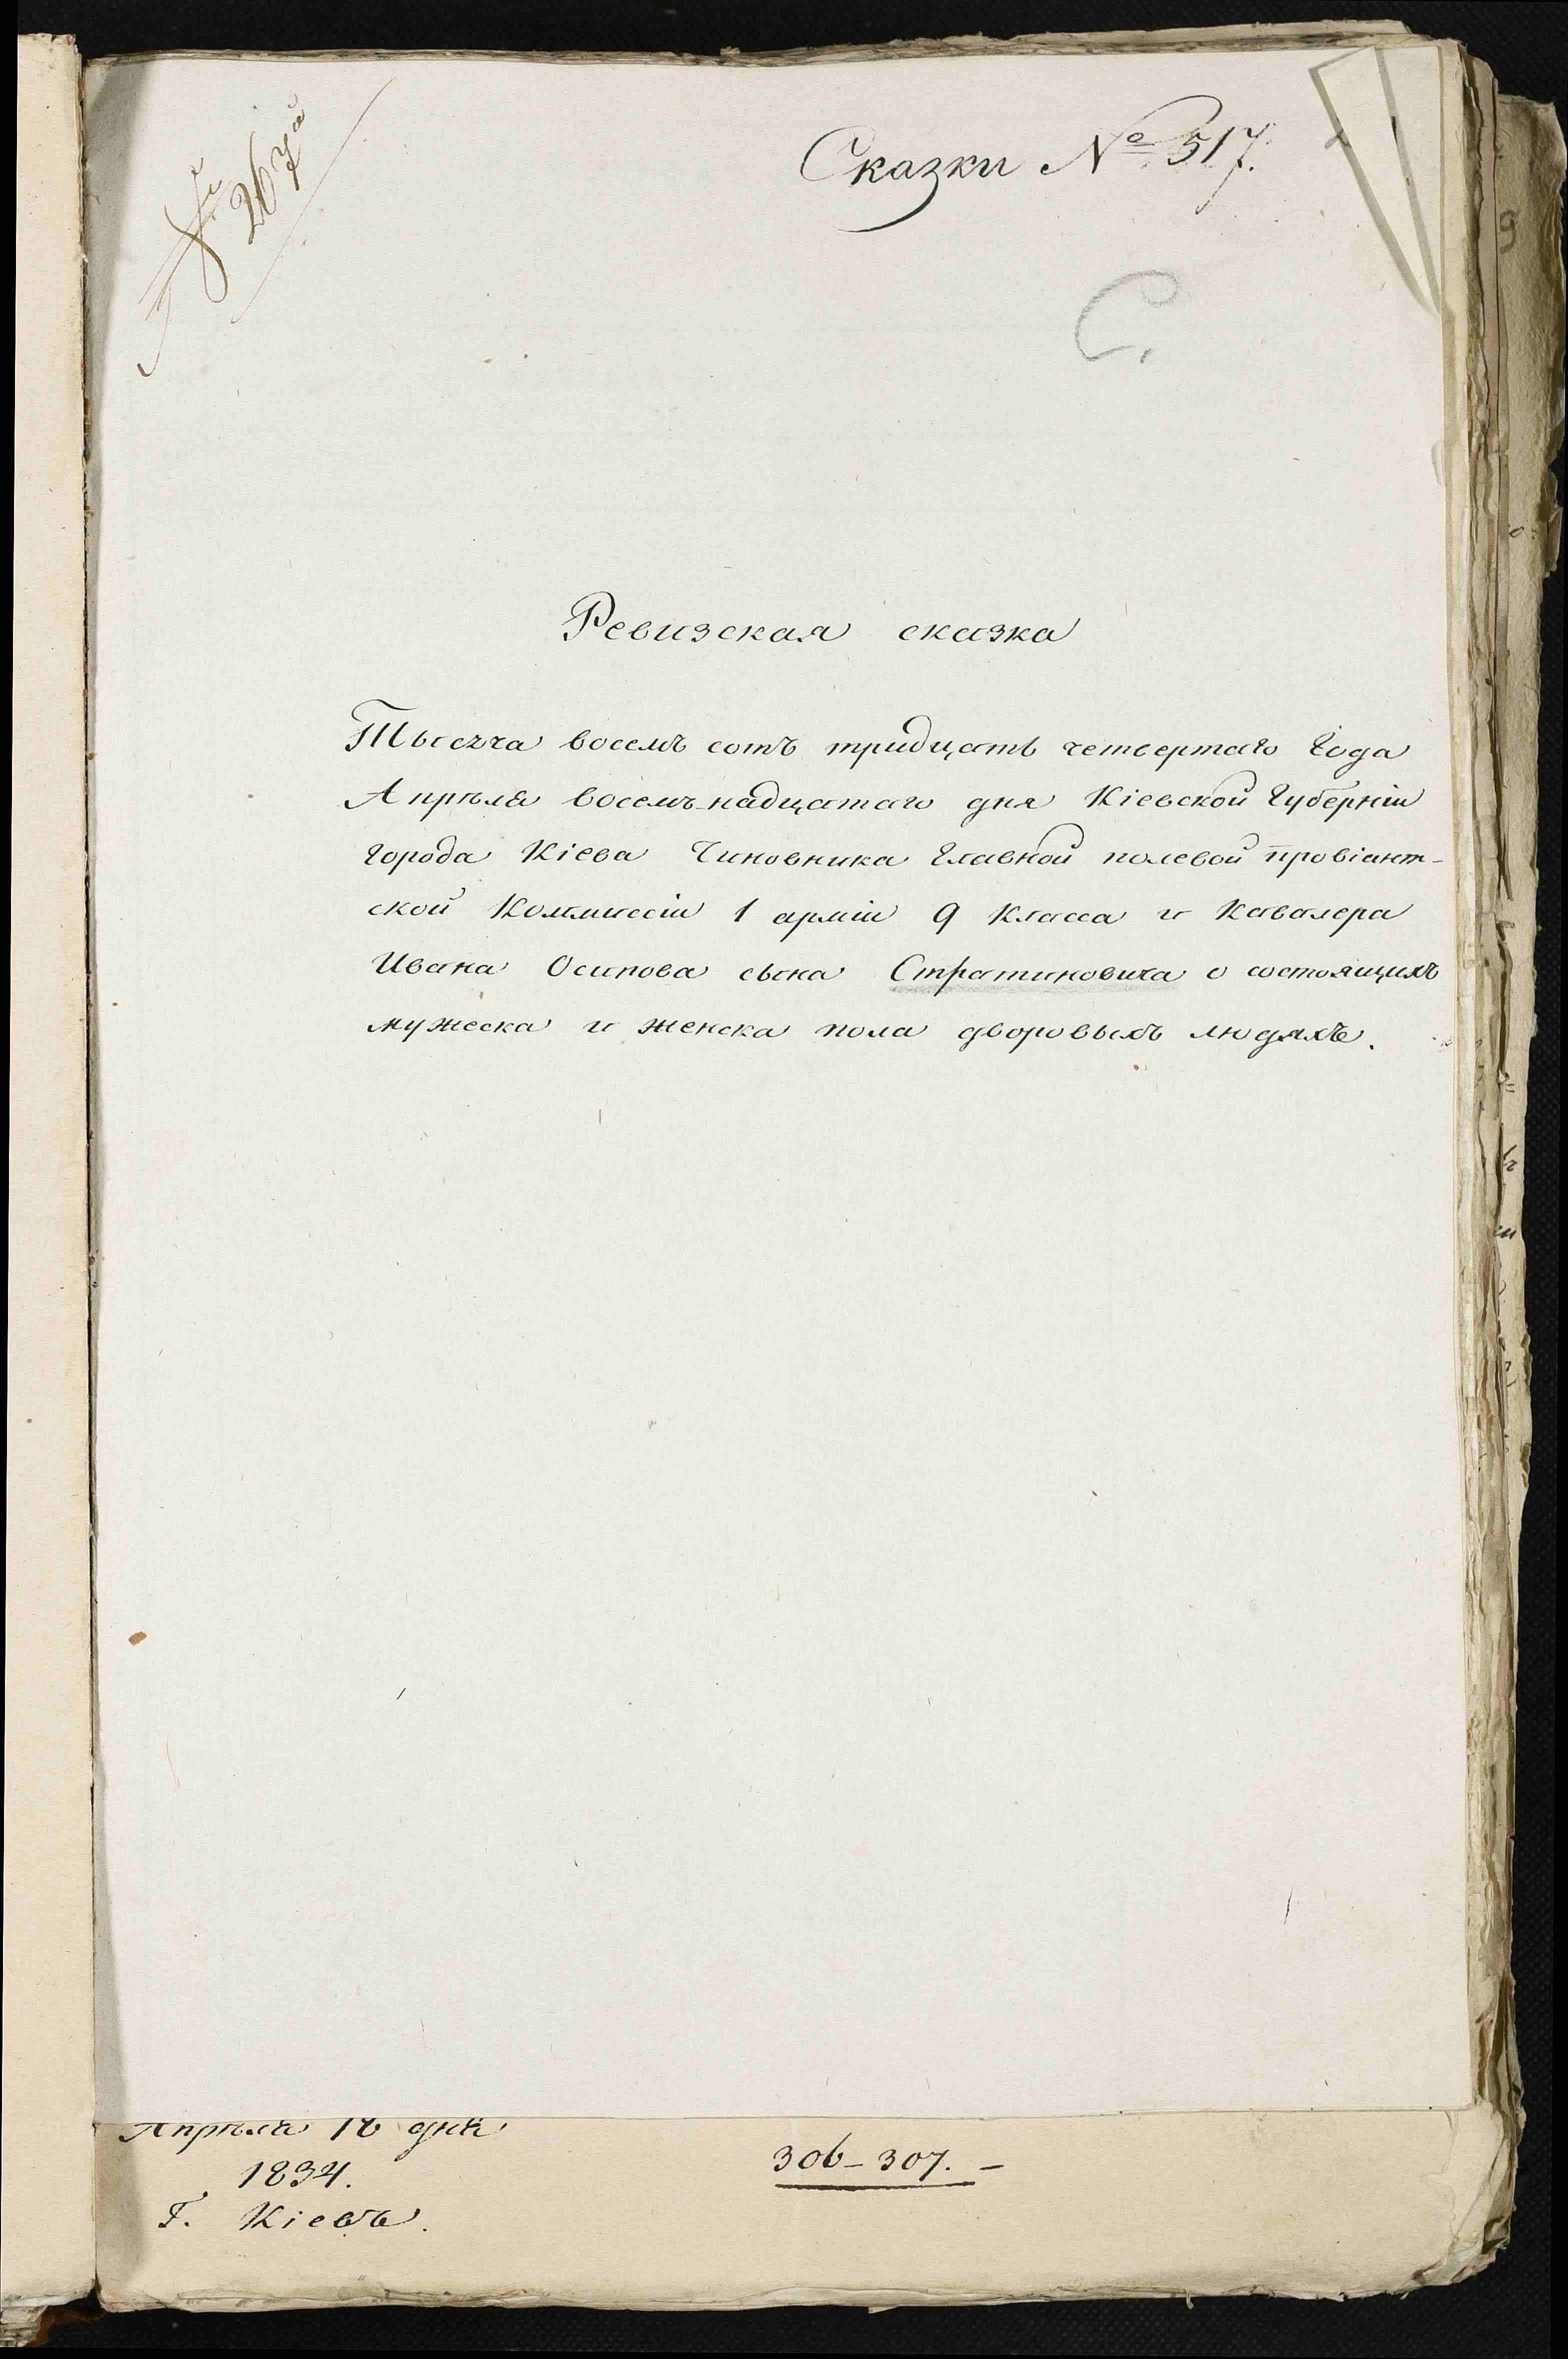 267й
Сказки № 517.
С.
Ревизская сказка
Тысеча восемъ сотъ тридцать четвертаго Года
Апрѣля восемънадцатаго дня Кіевской Губерніи
Города Кіева Чиновника Главной полевой провіант-
ской Коммиссіи 1 арміи 9 Класса и Кавалера
Ивана Осипова сына Стратиновича о состоящихъ
мужеска и женска пола дворовыхъ людяхъ.
Апрѣля 18 дня
1834.
Г. Кіевъ.
306-307.-